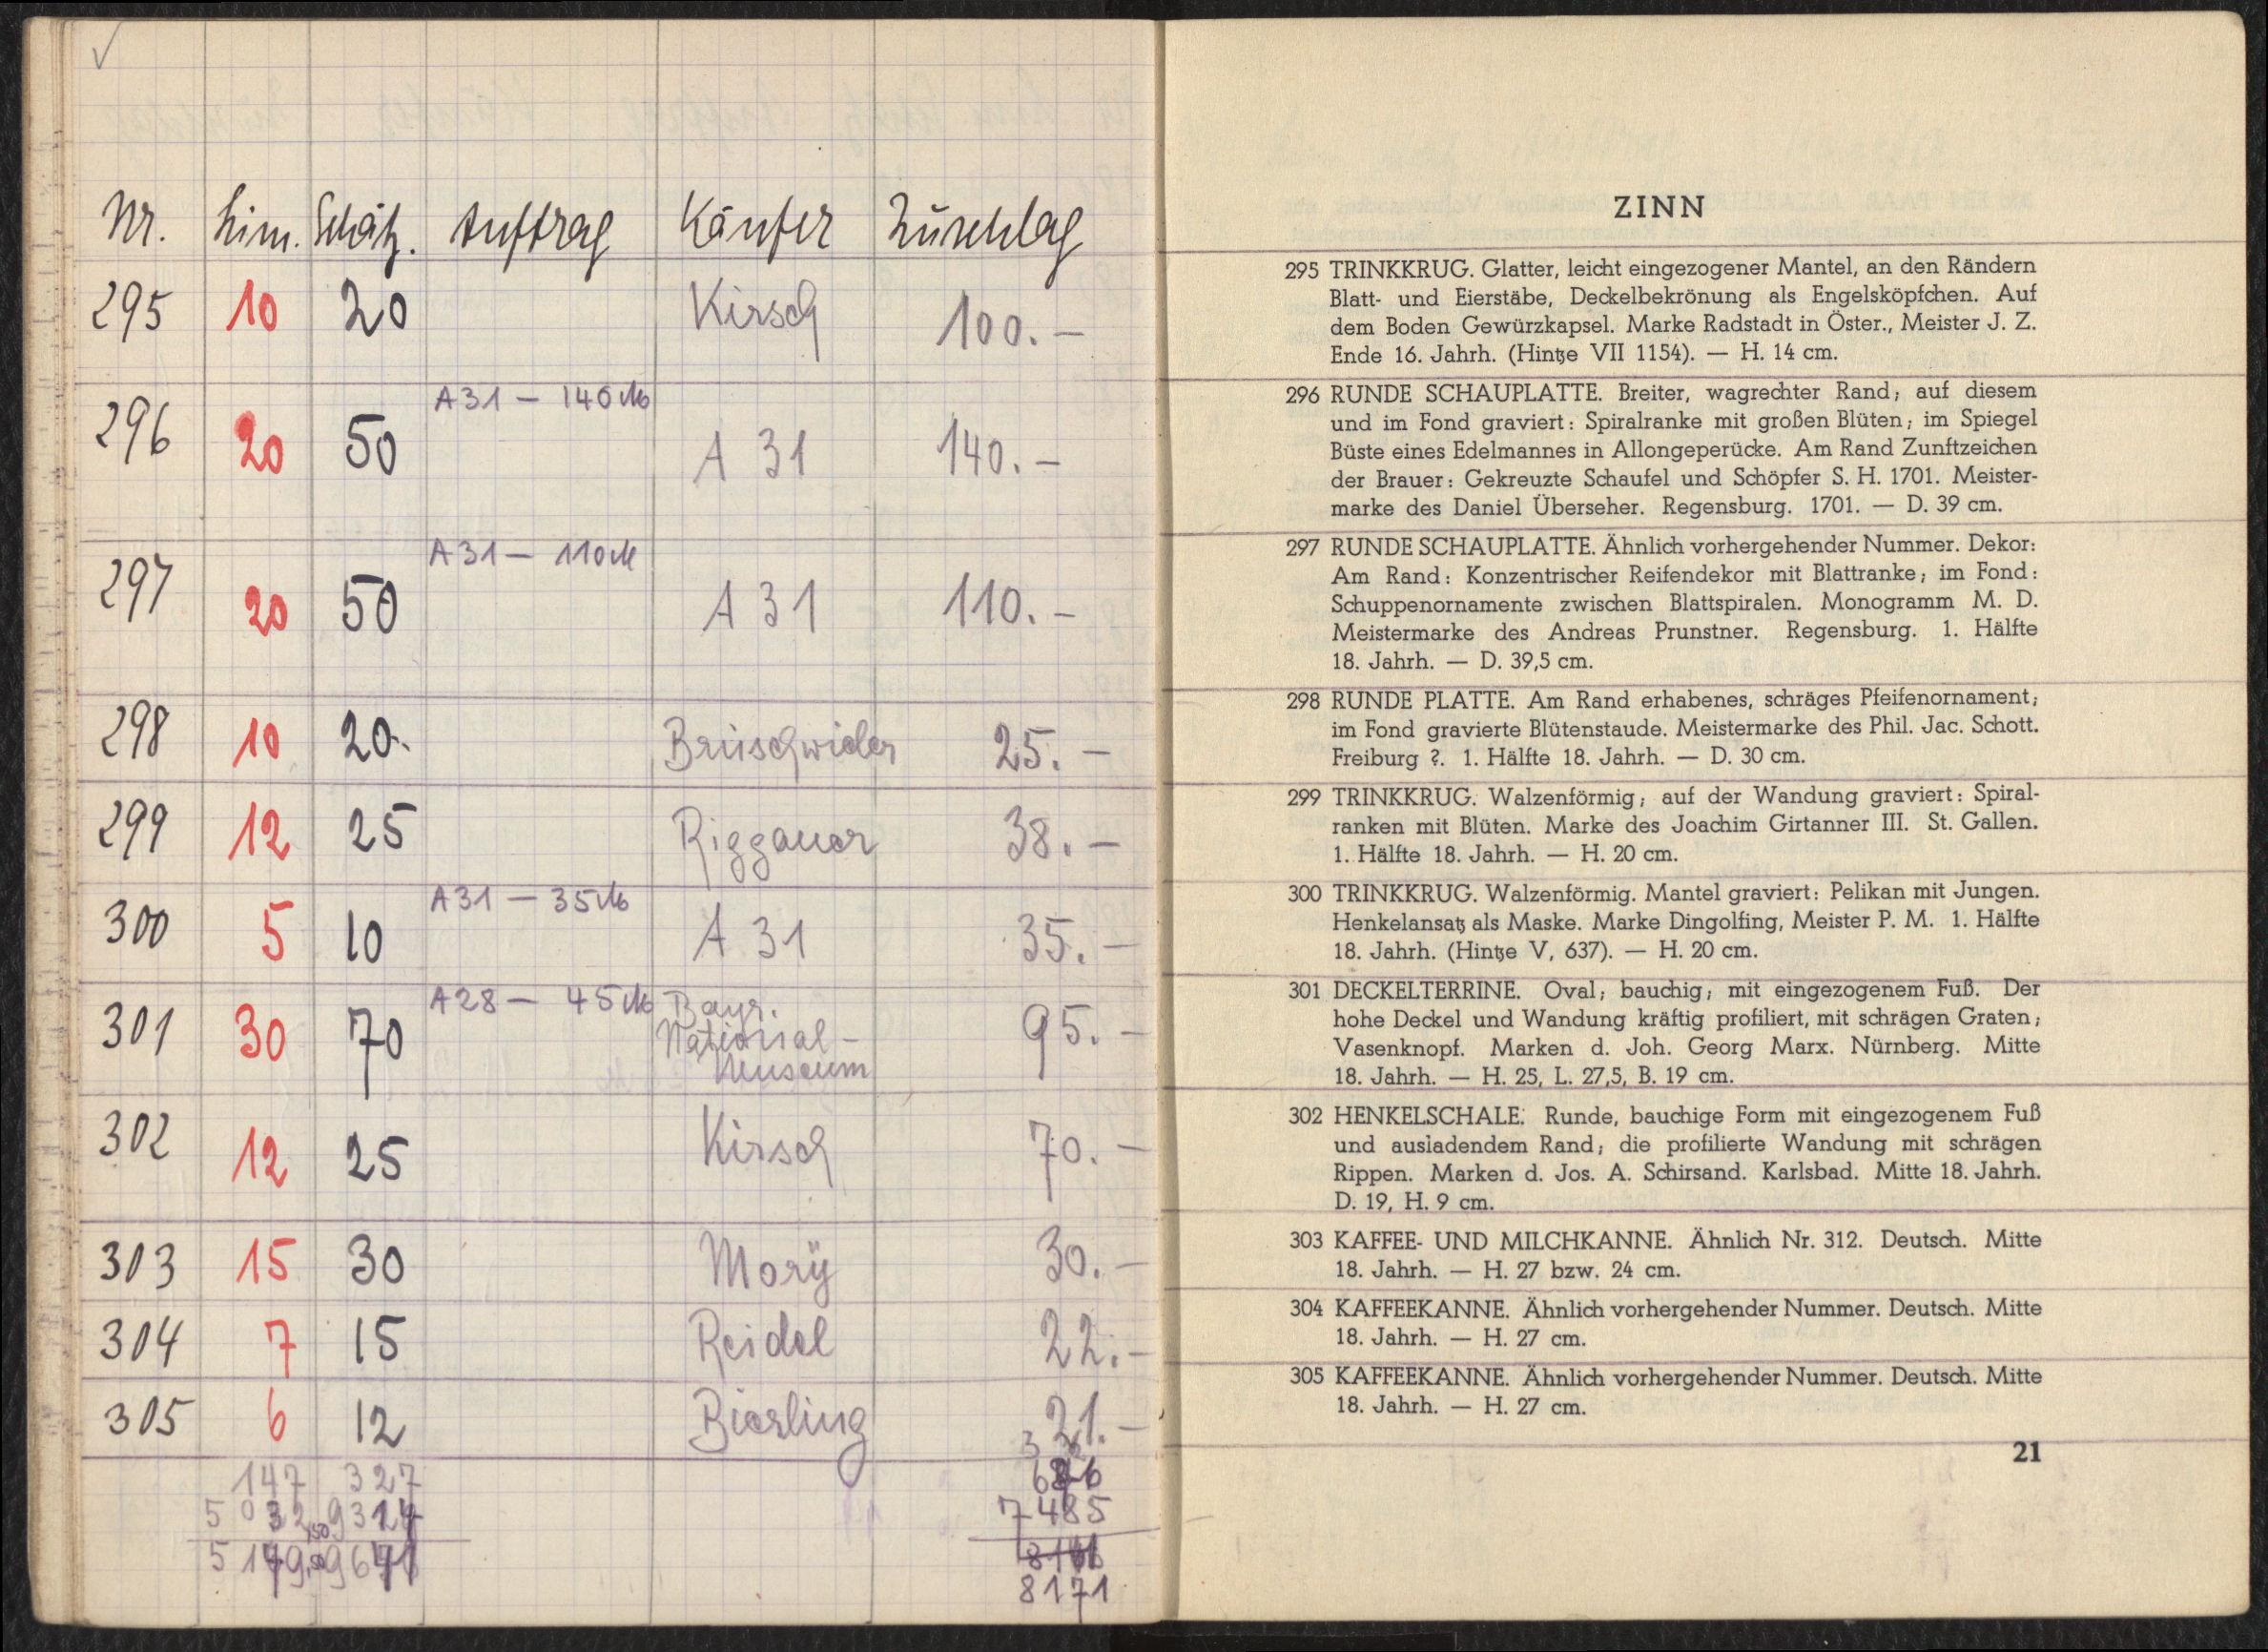 Nr. Lim. Schätz. Auftrag Käufer Zuschlag
295 10 20 Kirsch 100.-
A31 - 140 M
296 20 50 A 31 140.-
A31 - 110 M
297 20 50 A 31 110.-
298 10 20.- Brüschwiler 25.-
299 12 25 Riggauer 38.-
A31 - 35 M
300 5 10 A 31 35.-
A28 - 45 M
301 30 70 Bayr. National-Museum 95.-
302 12 25 Kirsch 70.-
303 15 30 Morÿ 30.-
304 7 15 Reidel 22.-
305 6 12 Bierling 21.-
147 327
7485
8171
ZINN
295 TRINKKRUG. Glatter, leicht eingezogener Mantel, an den Rändern
Blatt- und Eierstäbe, Deckelbekrönung als Engelsköpfchen. Auf
dem Boden Gewürzkapsel. Marke Radstadt in Öster., Meister J. Z.
Ende 16. Jahrh. (Hintze VII 1154). — H. 14 cm.
296 RUNDE SCHAUPLATTE. Breiter, wagrechter Rand; auf diesem
und im Fond graviert: Spiralranke mit großen Blüten; im Spiegel
Büste eines Edelmannes in Allongeperücke. Am Rand Zunftzeichen
der Brauer: Gekreuzte Schaufel und Schöpfer S. H. 1701. Meister-
marke des Daniel Überseher. Regensburg. 1701. — D. 39 cm.
297 RUNDE SCHAUPLATTE. Ähnlich vorhergehender Nummer. Dekor:
Am Rand: Konzentrischer Reifendekor mit Blattranke; im Fond:
Schuppenornamente zwischen Blattspiralen. Monogramm M. D.
Meistermarke des Andreas Prunstner. Regensburg. 1. Hälfte
18. Jahrh. — D. 39,5 cm.
298 RUNDE PLATTE. Am Rand erhabenes, schräges Pfeifenornament;
im Fond gravierte Blütenstaude. Meistermarke des Phil. Jac. Schott.
Freiburg ?. 1. Hälfte 18. Jahrh. — D. 30 cm.
299 TRINKKRUG. Walzenförmig; auf der Wandung graviert: Spiral-
ranken mit Blüten. Marke des Joachim Girtanner III. St. Gallen.
1. Hälfte 18. Jahrh. — H. 20 cm.
300 TRINKKRUG. Walzenförmig. Mantel graviert: Pelikan mit Jungen.
Henkelansatz als Maske. Marke Dingolfing, Meister P. M. 1. Hälfte
18. Jahrh. (Hintze V, 637). — H. 20 cm.
301 DECKELTERRINE. Oval; bauchig; mit eingezogenem Fuß. Der
hohe Deckel und Wandung kräftig profiliert, mit schrägen Graten;
Vasenknopf. Marken d. Joh. Georg Marx. Nürnberg. Mitte
18. Jahrh. — H. 25, L. 27,5, B. 19 cm.
302 HENKELSCHALE. Runde, bauchige Form mit eingezogenem Fuß
und ausladendem Rand; die profilierte Wandung mit schrägen
Rippen. Marken d. Jos. A. Schirsand. Karlsbad. Mitte 18. Jahrh.
D. 19, H. 9 cm.
303 KAFFEE- UND MILCHKANNE. Ähnlich Nr. 312. Deutsch. Mitte
18. Jahrh. — H. 27 bzw. 24 cm.
304 KAFFEEKANNE. Ähnlich vorhergehender Nummer. Deutsch. Mitte
18. Jahrh. — H. 27 cm.
305 KAFFEEKANNE. Ähnlich vorhergehender Nummer. Deutsch. Mitte
18. Jahrh. — H. 27 cm.
21